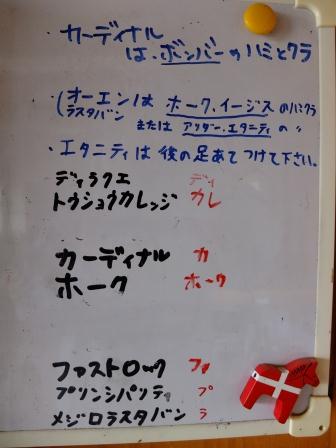 ・カーディナル
は、ボンバーのハミとクラ
・(オーエン は ホーク、イージス のハミクラ
ラスタバン または アリダー、エタニティ の 〃
・エタニティは後の足あてつけて下さい。
ディラクエ ディ
トウショウカレッジ カレ
カーディナル カ
ホーク ホーク
ファストロック ファ
プリンシパリティ プ
メジロラスタバン ラ